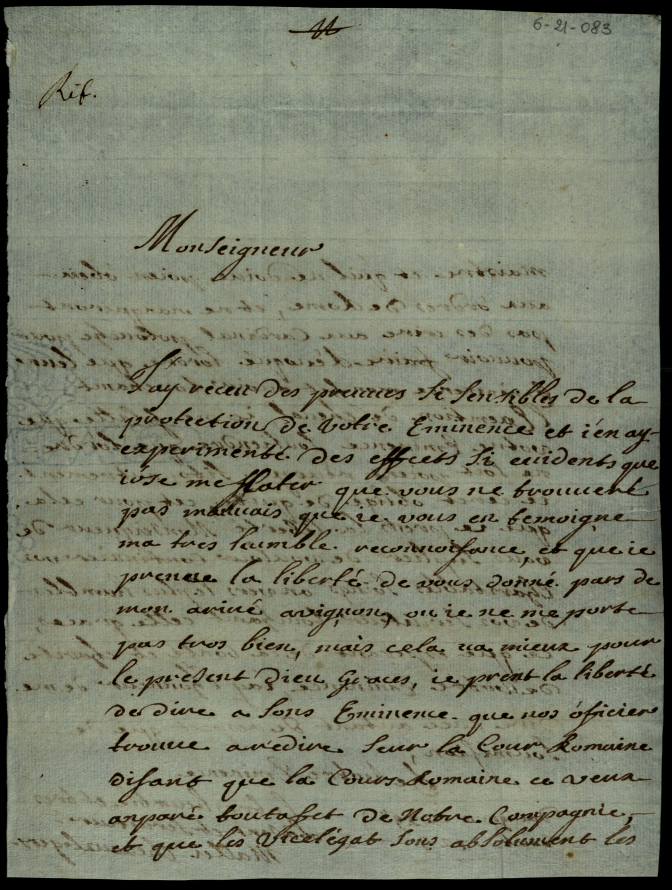 11
6-21-083
Rif.
Monseigneur
J'ay réceu des preuues si sensibles de la
protection de votre Eminence et i'en ay
experimenté des effects si euidents que
iose me flater que vous ne trouueré
pas mauuais que ie vous en temoigne
ma tres humble reconnoissance, et que ie
prenne la liberté de vous donné pars de
mon ariué avignon, ou ie ne me porte
pas tros bien, mais cela ua mieux pour
le présent Dieu Graces, ie prent la liberté
de dire a sons Eminence que nos officier
trouue a redire seur la Cour Romaine
Disant que la Cours Romaine ce veux
anparé toutafet de Notre Compagnie,
et que les Vicelégat sons absolument les